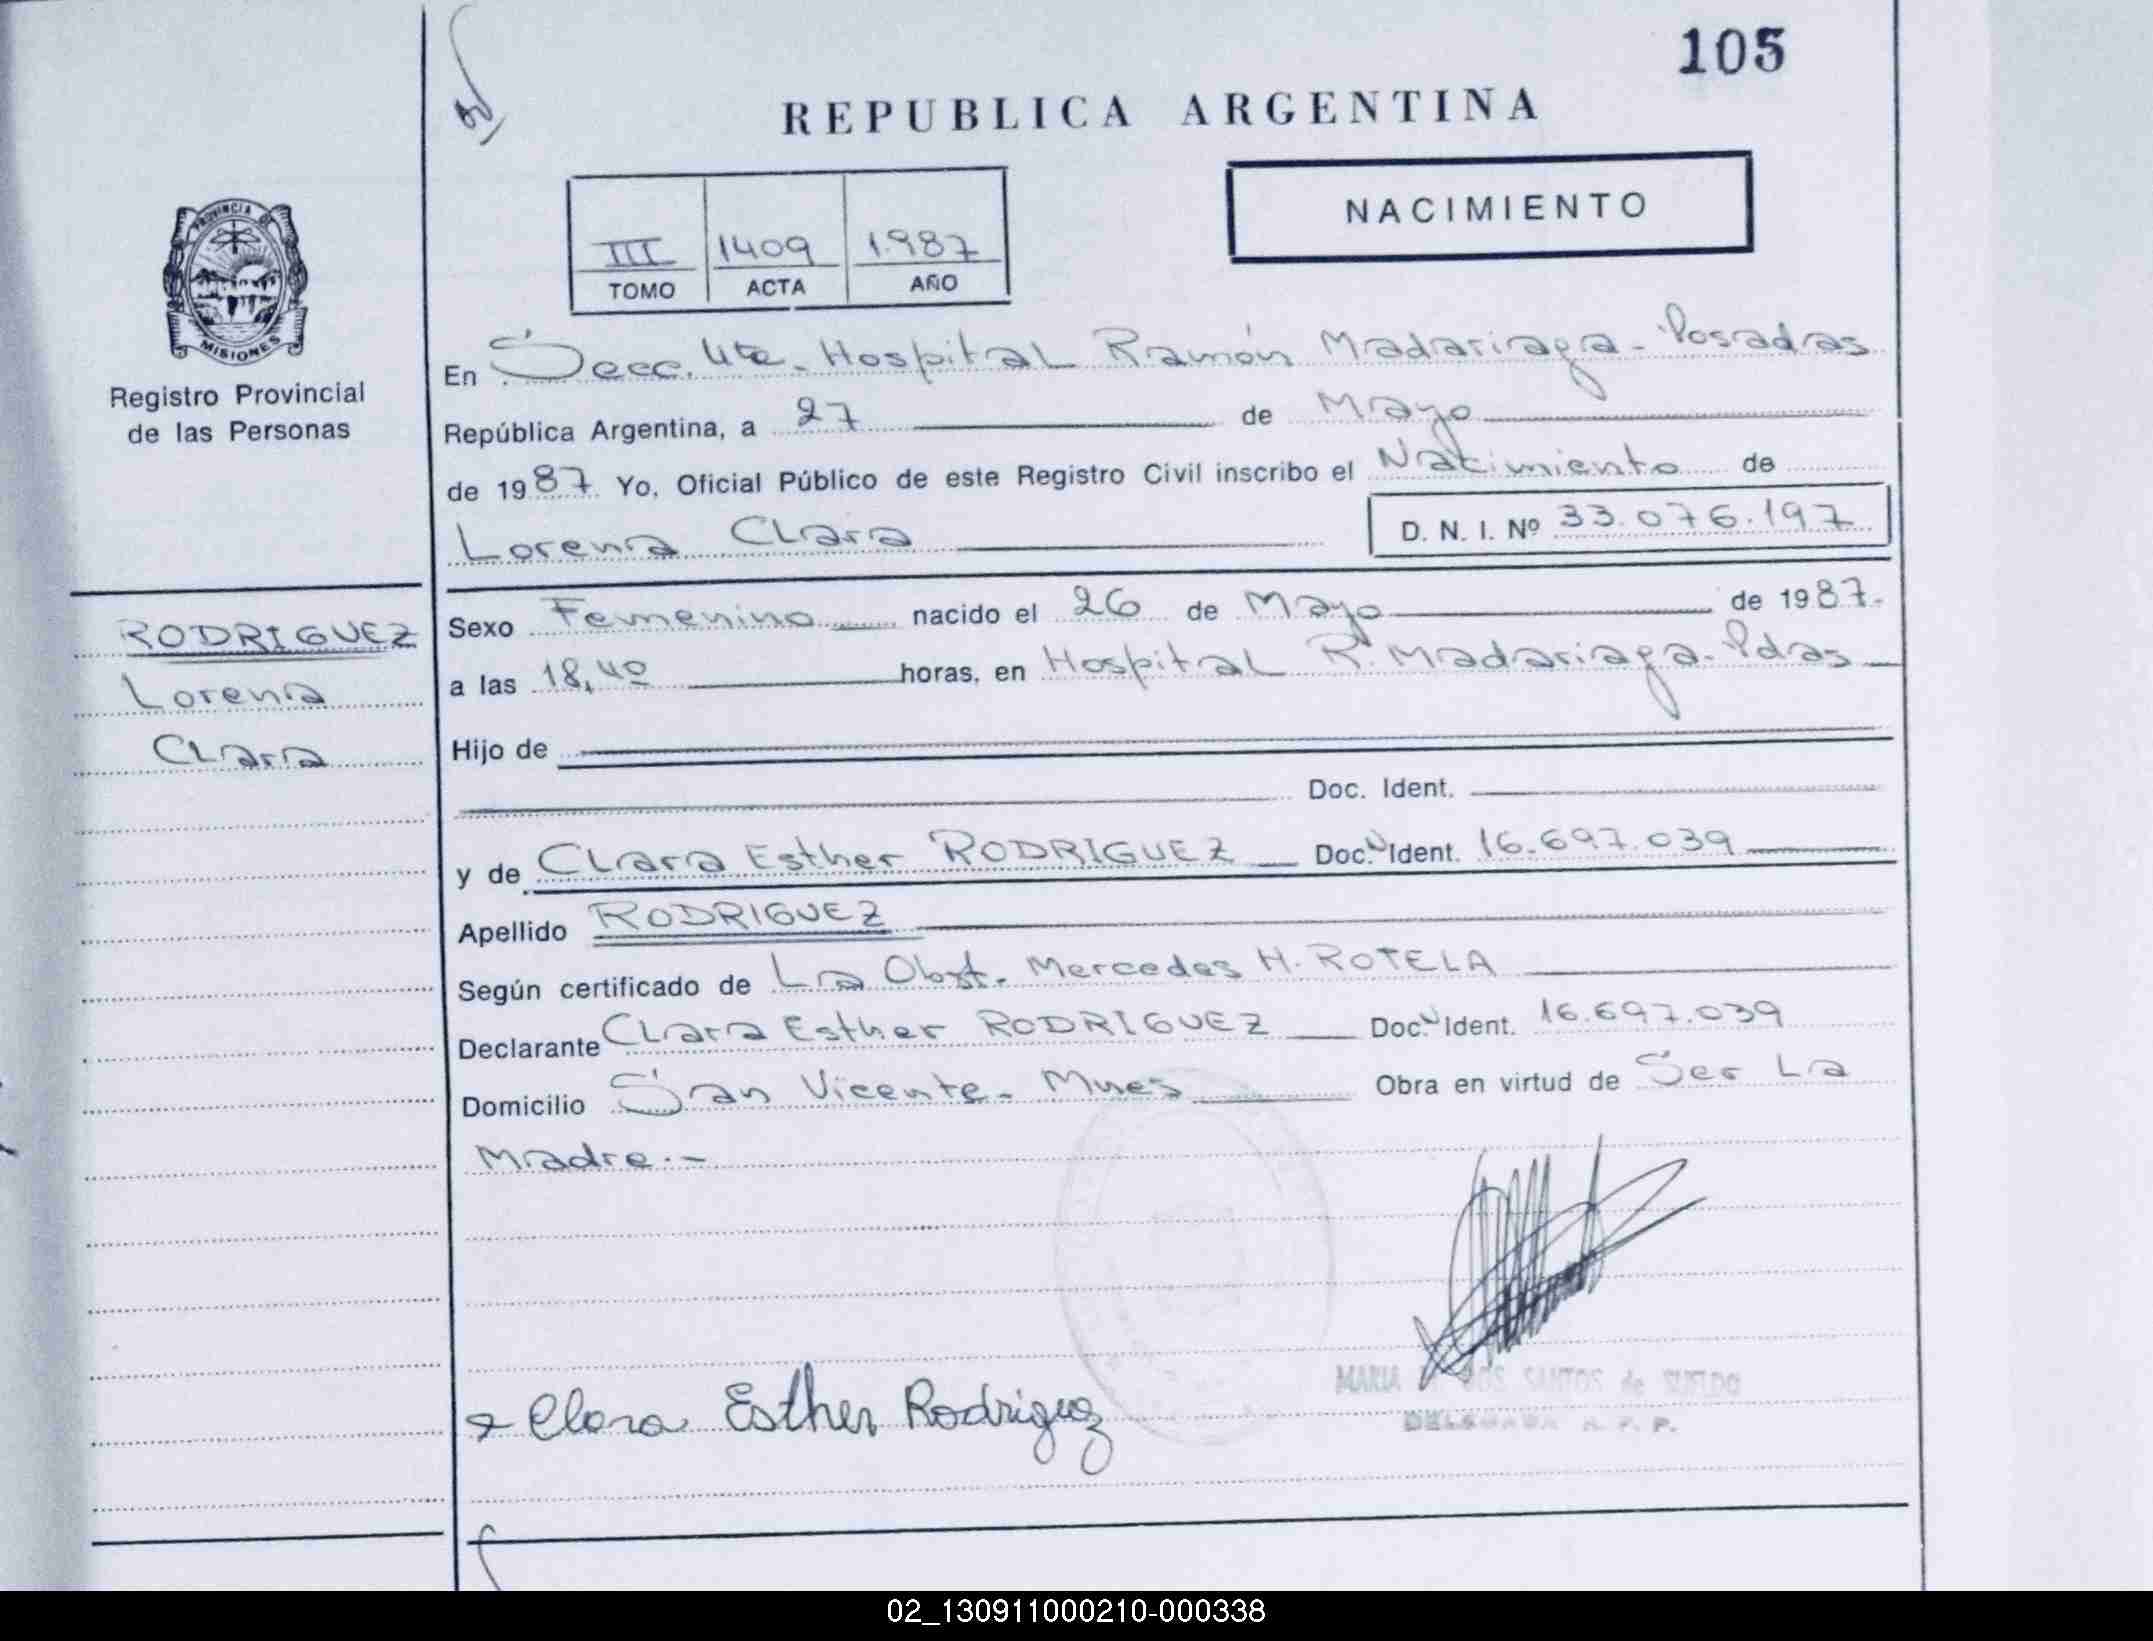 105
REPUBLICA ARGENTINA
NACIMIENTO
III 1409 1.987
TOMO ACTA AÑO
PROVINCIA DE
MISIONES
Registro Provincial
de las Personas
En Secc. 4ta. Hospital Ramón Madariaga - Posadas
República Argentina, a 27 de Mayo
de 1987. Yo, Oficial Público de este Registro Civil inscribo el Nacimiento de
Lorena Clara D. N. I. Nº 33.076.197
RODRIGUEZ
Lorena
Clara
Sexo Femenino nacido el 26 de Mayo de 1987.-
a las 18,40 horas, en Hospital R. Madariaga - Pdas
Hijo de
Doc. Ident.
y de Clara Esther RODRIGUEZ Doc. Ident. 16.697.039
Apellido RODRIGUEZ
Según certificado de La Obst. Mercedes H. ROTELA
Declarante Clara Esther RODRIGUEZ Doc. Ident. 16.697.039
Domicilio San Vicente - Mnes Obra en virtud de Ser La
Madre.-
MARIA DOS SANTOS de SUELDO
DELEGADA R. P. P.
Clara Esther Rodriguez
02_130911000210-000338